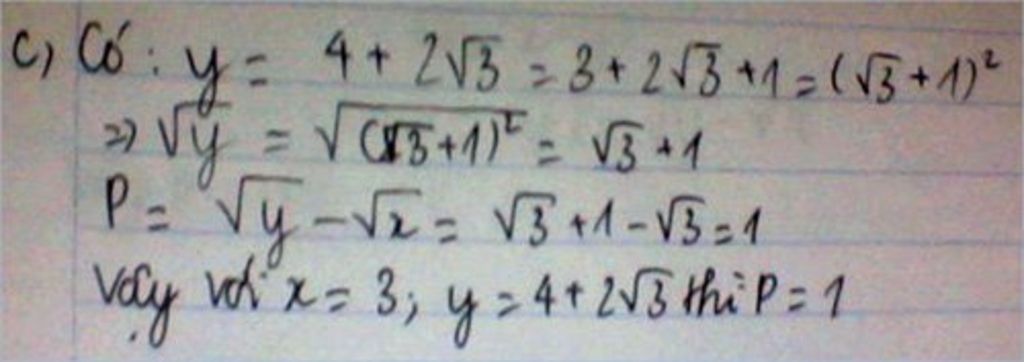 c) Có: y = 4 + 2√3 = 3 + 2√3 + 1 = (√3 + 1)²
=> √y = √(√3 + 1)² = √3 + 1
P = √y - √x = √3 + 1 - √3 = 1
Vậy với x = 3; y = 4 + 2√3 thì P = 1